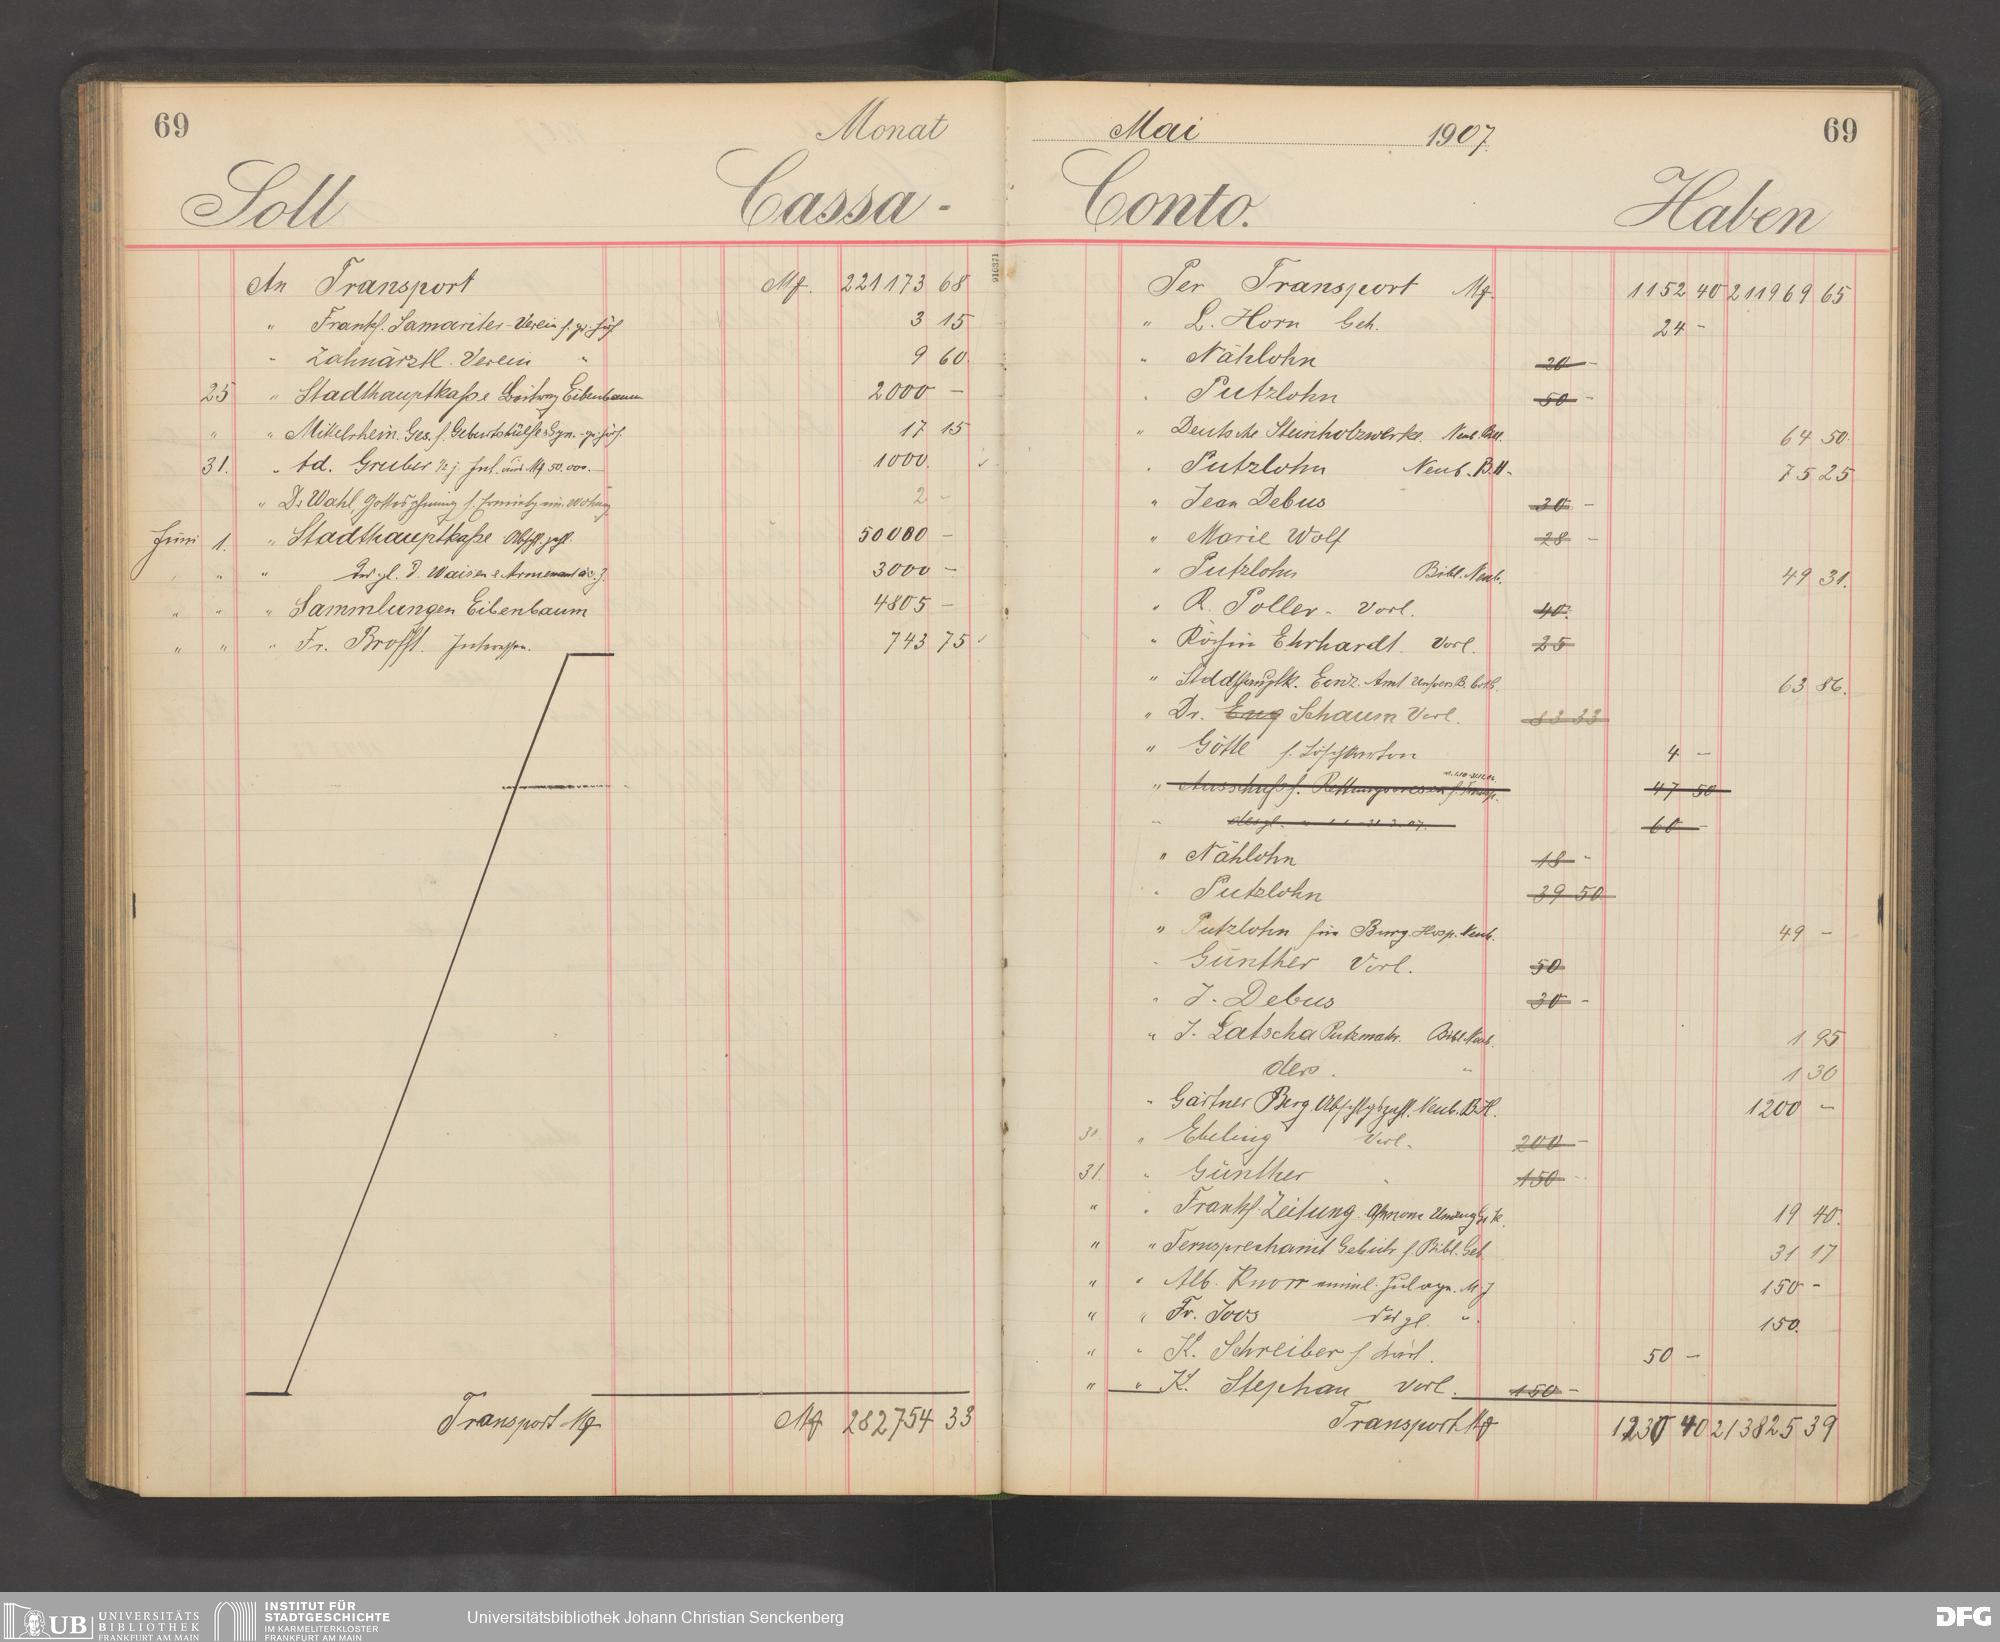 69 Monat
Soll Cassa-
An Transport Mf. 221173 68
" Frankf. Samariter-Verein f. 3 15
" Zahnärztl. Verein " 9 60
25 " Stadthauptkaße Eibenbaum 2000 –
" " Mittelrhein. Ges. f. Geburtshülfe 17 15
31. " Ad. Gruber ½ j. Int. Mf 50.000.– 1000.
" Dr Wahl, 2 –
Juni 1. " Stadthauptkaße 50000 –
" " " dsgl. 3000 –
" " " Sammlungen Eibenbaum 4805 –
" " " Fr. Brofft. Interessen. 743 75
Transport Mf Mf 282754 33
910371
Mai 1907. 69
Conto. Haben
Per Transport Mf. 1152 40 211969 65
" L. Horn Geh. 24 –
" Nählohn 20 –
" Putzlohn 50 –
" Deutsche Steinholzwerke. Neub. 64 50.
" Putzlohn Neub. B.H. 75 25
" Jean Debus 30 –
" Marie Wolf 28 –
" Putzlohn Bibl. Neub. 49 31.
" R. Poller – Vorl. 40.
" Ehrhardt. Vorl. 25
" Stadthauptk. Amt 63 86.
" Dr. Eug Schaum Vorl. 83 33
" Götte f. 4 –
" Ausschuß f. Rettungswesen f. 47 50
" desgl. 60 –
" Nählohn 18 –
" Putzlohn 39 50
" Putzlohn für Burg. Hosp. Neub. 49 –
" Günther Vorl. 50
" J. Debus 30 –
" J. Latscha Putzmatr. Bibl. Neub. 1 95
ders. " 1 30
" Gärtner Berg Abschlgszahl. Neub. B.H. 1200 –
30. " Ebeling Vorl. 200 –
31. " Günther " 150 –
" " Frankf. Zeitung 19 40.
" " Fernsprechamt Gebühr f. Bibl. Geb. 31 17
" " Alb. Knorr 150 –
" " Fr. Joos dsgl. " 150.
" " K. Schreiber f. 50 –
" " K. Stephan Vorl. 150 –
Transport Mf 1230 40 213825 39
UB UNIVERSITÄTS
BIBLIOTHEK
FRANKFURT AM MAIN
INSTITUT FÜR
STADTGESCHICHTE
IM KARMELITERKLOSTER
FRANKFURT AM MAIN
Universitätsbibliothek Johann Christian Senckenberg
DFG